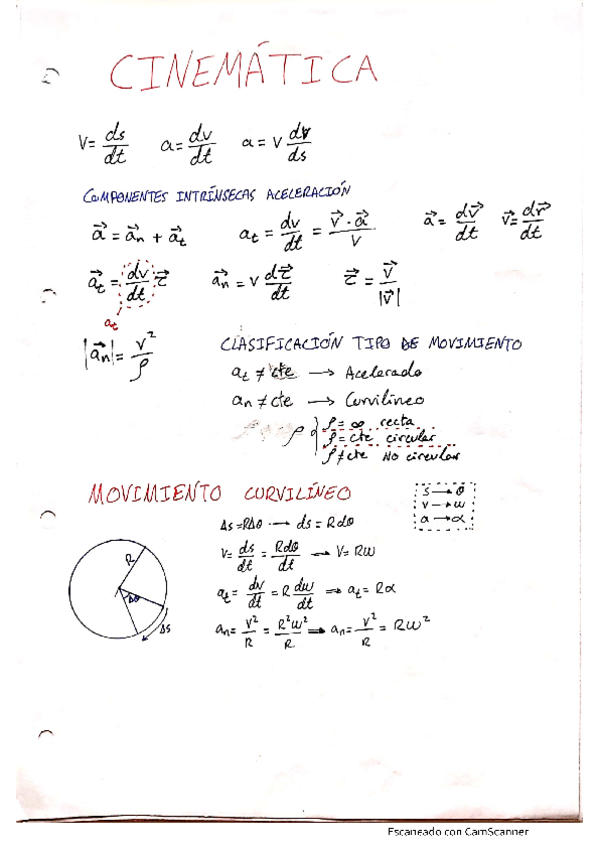 CINEMÁTICA
V = ds/dt   a = dv/dt   a = v dv/ds
COMPONENTES INTRÍNSECAS ACELERACIÓN
a⃗ = a⃗n + a⃗t   at = dv/dt = v⃗·a⃗/v   a⃗ = dv⃗/dt   v⃗ = dr⃗/dt
a⃗t = dv/dt τ⃗   a⃗n = v dτ⃗/dt   τ⃗ = v⃗/|v⃗|
at
|a⃗n| = v²/ρ
CLASIFICACIÓN TIPO DE MOVIMIENTO
at ≠ cte → Acelerado
an ≠ cte → Curvilíneo
ρ { ρ = ∞ recta
ρ = cte circular
ρ ≠ cte No circular
MOVIMIENTO CURVILÍNEO
s → θ
v → ω
a → α
Δs = RΔθ → ds = Rdθ
V = ds/dt = Rdθ/dt → V = Rω
at = dv/dt = R dω/dt → at = Rα
an = V²/R = R²ω²/R → an = V²/R = Rω²
R
Δθ
Δs
Escaneado con CamScanner